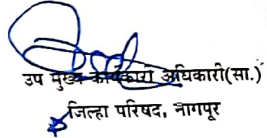 उप मुख्य कार्यकारी अधिकारी(सा.)
जिल्हा परिषद, नागपूर